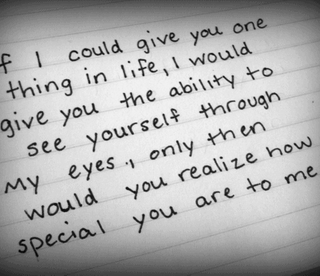 f I could give you one
thing in life, I would
give you the ability to
see yourself through
my eyes., only then
would you realize how
special you are to me